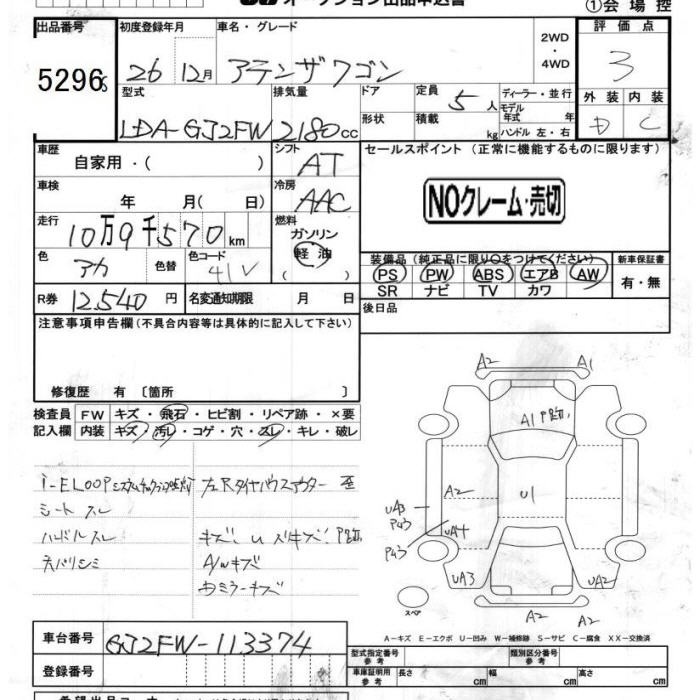 オークション出品申込書
①会場控
出品番号 初度登録年月 車名・グレード 2WD・4WD 評価点
5296s 26 12月 アテンザワゴン 3
型式 排気量 ドア 定員 5人 ディーラー・並行 外装 内装
形状 積載 kg モデル年式 年 D C
LDA-GJ2FW 2180cc ハンドル 左・右
車歴 シフト セールスポイント(正常に機能するものに限ります)
自家用・( ) AT
車検 冷房 NOクレーム・売切
年 月( 日) AAC
走行 燃料
10万9千570km ガソリン
色 色替 色コード 軽油 装備品(純正品に限り○をつけてください) 新車保証書
アカ 41V PS PW ABS エアB AW 有・無
SR ナビ TV カワ
R券 12,540円 名変通知期限 月 日 後日品
注意事項申告欄(不具合内容等は具体的に記入して下さい)
修復歴 有 〔箇所 〕
検査員 FW キズ・飛石・ヒビ割・リペア跡・×要
記入欄 内装 キズ・汚レ・コゲ・穴・スレ・キレ・破レ
シート スレ
ハンドルスレ
A/Wキズ
A2 A1
A1
A2 U1
UA3 P43 P43 UA4
UA3 UA2
A2 A2
スペア
A-キズ E-エクボ U-凹み W-補修跡 S-サビ C-腐食 XX-交換済
車台番号 GJ2FW-113374
登録番号
型式指定番号 参考 類別区分番号 参考
車庫証明用 参考 長さ cm 幅 cm 高さ cm